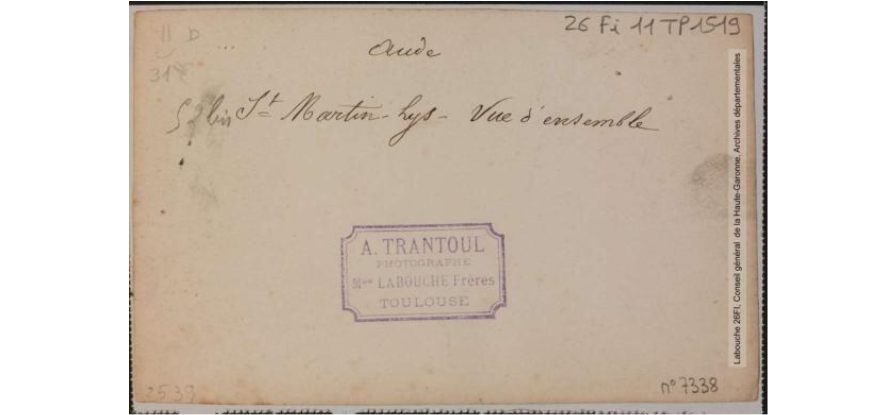 11 D
26 Fi 11 TP 1519
Aude
318
52 bis St Martin-lys- Vue d'ensemble
A. TRANTOUL
PHOTOGRAPHE
Mon LABOUCHE Frères
TOULOUSE
2539
n° 7338
Labouche 26FI, Conseil général de la Haute-Garonne, Archives départementales